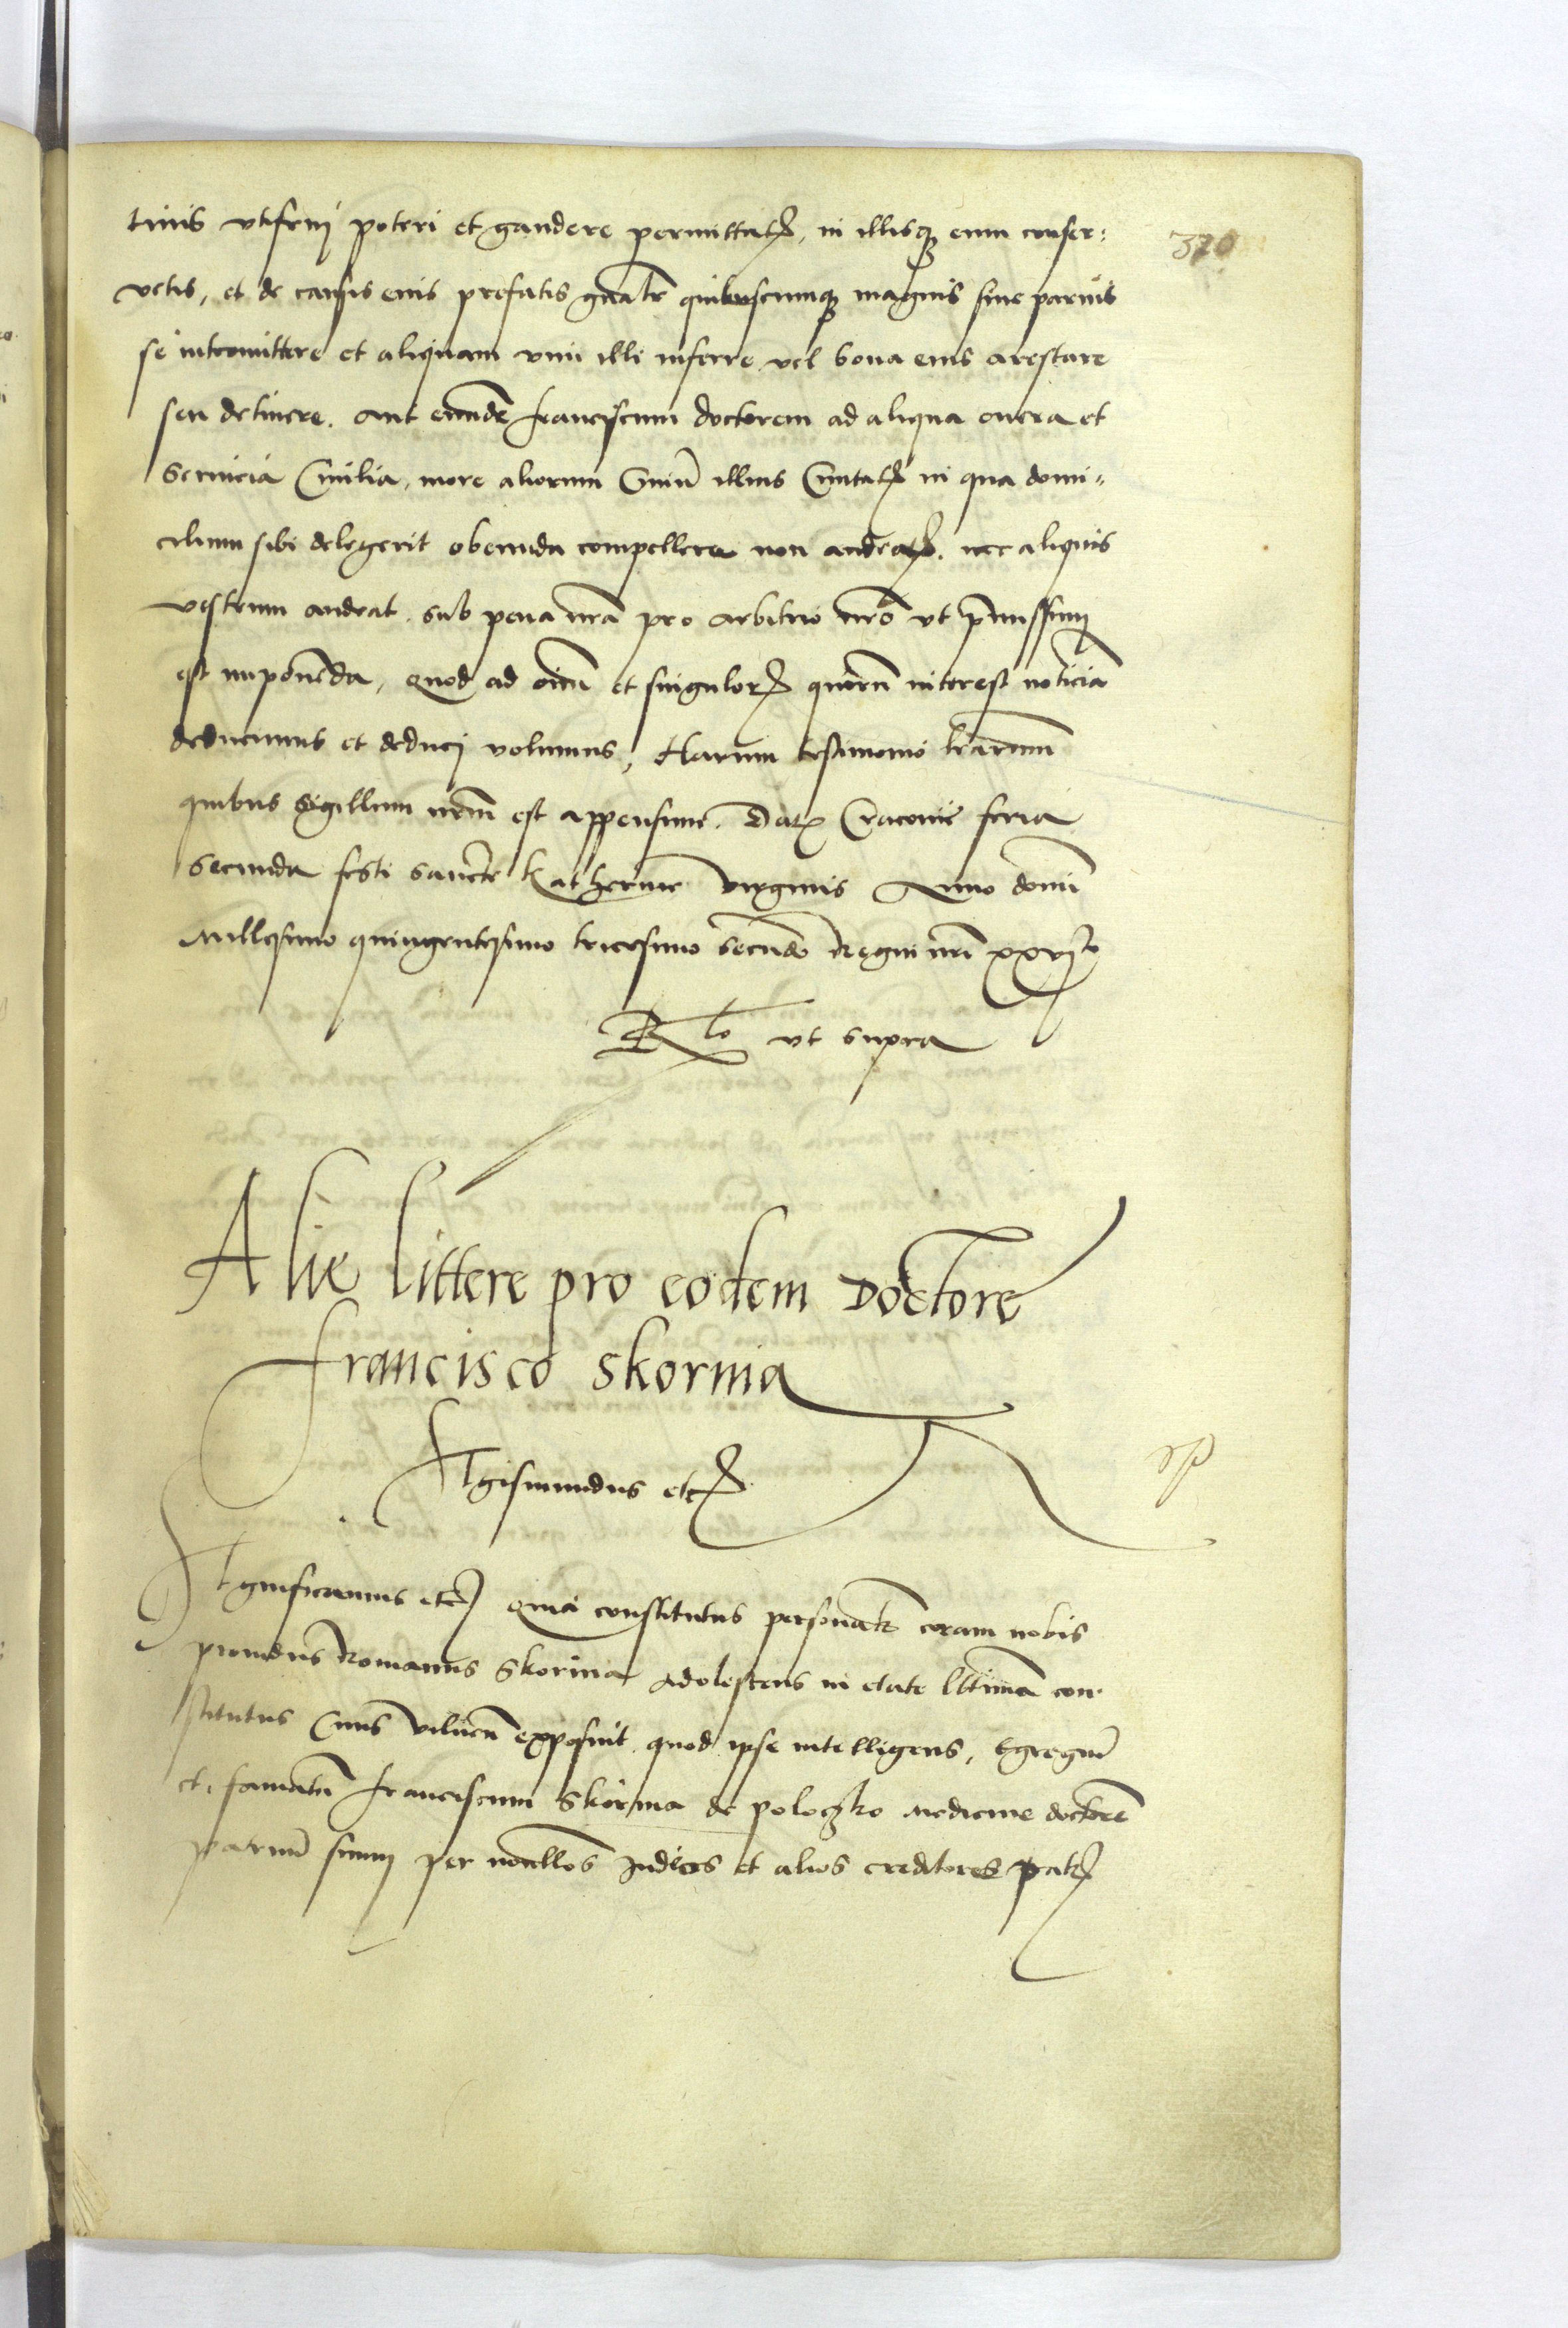 370
tiuis vtifruj poteri et gaudere permittatis, in illisque eum conser:
vetis, et de causis eius prefatis gnalr quibuscumque magnis siue paruis
se intromittere et aliquam vim illi inferre vel bona eius arestare
seu detinere. aut eundē franciscum doctorem ad aliqua onera et
seruicia Ciuilia, more aliorum Ciuiū illius Ciuitatis in qua domi:
cilium sibi delegerit obeunda compellere non audeatis. nec aliquis
vestrum audeat, sub pena nrā pro arbitrio nrō vt pmissum
est imponēda, quod ad oīm et singulorum quorū interest noticiā
deducimus et deducj volumus, Harum testimonio lrarum
quibus Sigillum nrm̄ est appensum. Dat Cracouie feria
secunda festi sancte Katherine virginis Anno domī
Millesimo quingentesimo tricesimo secūdo Regni nrī xxvjto
Rlo vt supra
Alie littere pro eodem Doctore
Francisco Skorina
Sigismundus etc
Significamus etc Quia constitutus personalr coram nobis
prouidus Romanus Skorina adolescens in etate lttima con-
stitutus Ciuis vilneñ exposuit quod ipse intelligens, Egregiū
et famatū franciscum Skorina de poloczko medicine doctorē
patruū suum per nonullos Iudeos et alios creditores patris